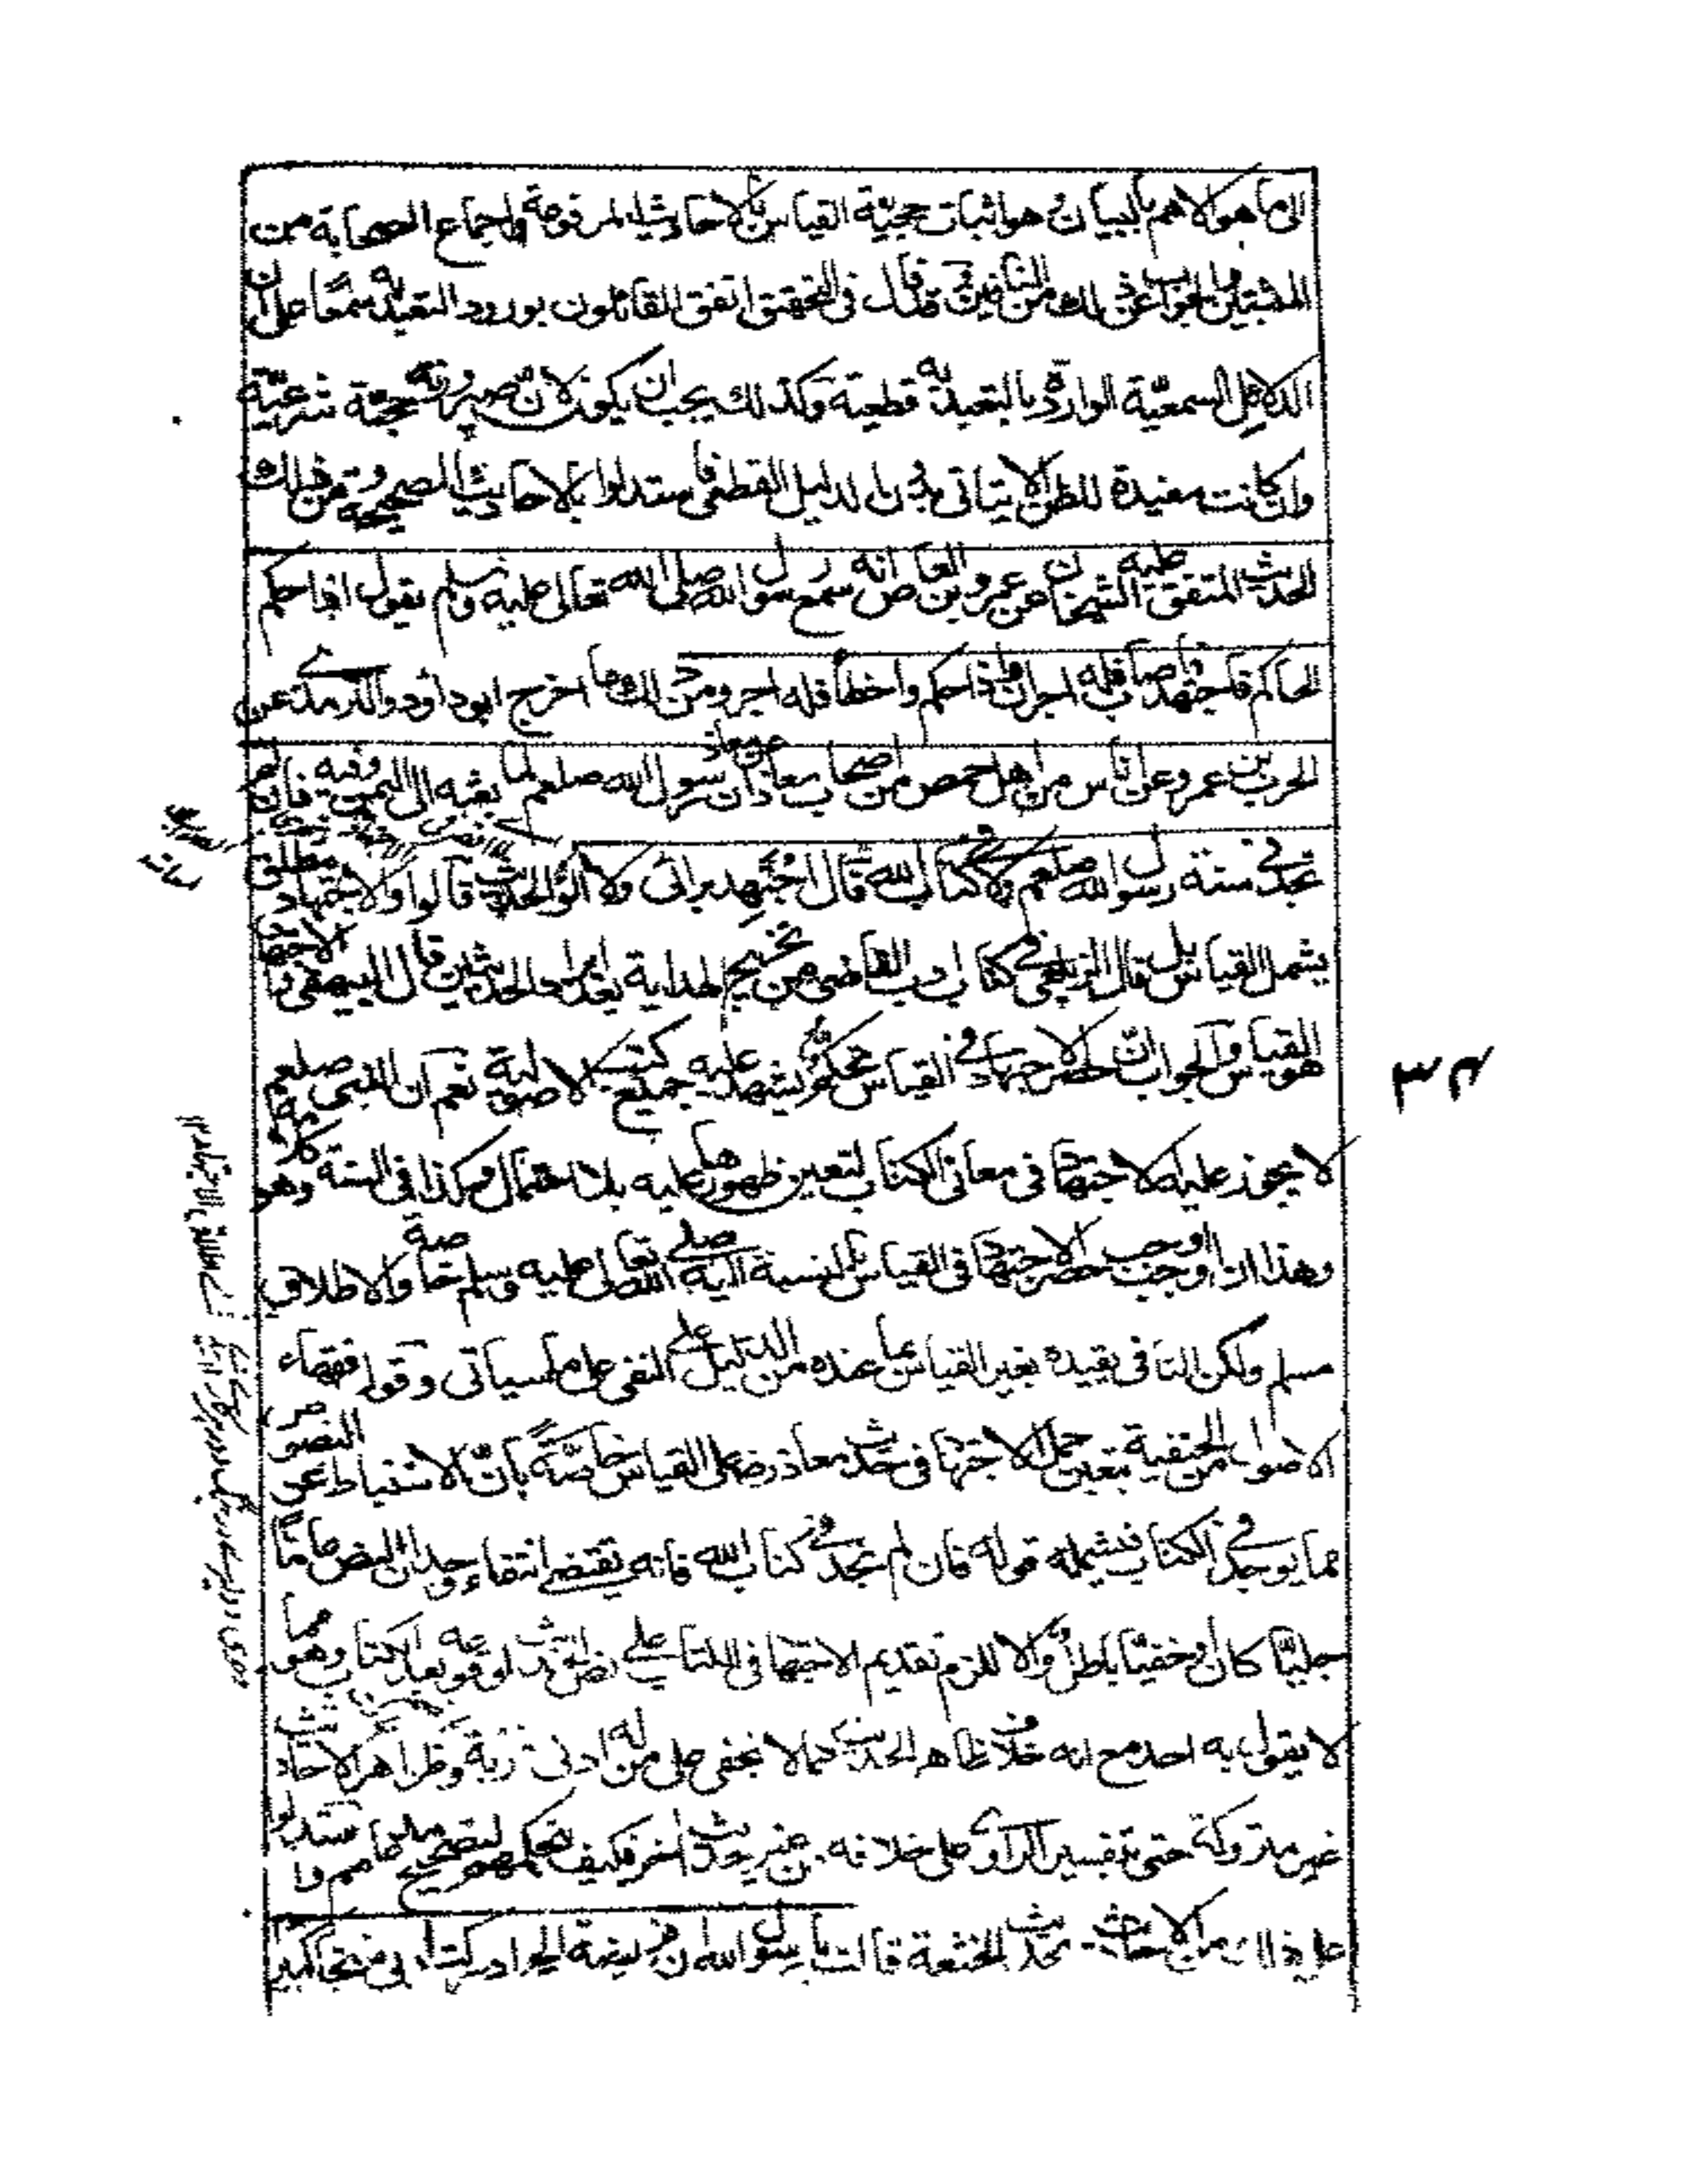 الى ما هو الاهم بالبيان وهو اثبات حجيّة القياس بالاحاديث المرفوعة واجماع الصحابة من
المثبتين والجواب عن ذلك من النافين قال في التحقيق اتفق القائلون بورود التعبد به سمعًا على ان
الدلائل السمعيّة الواردة بالتعبد به قطعية وكذلك يجب ان يكون لانّ صيرورته حجة شرعيّة
وان كانت مفيدة للظن لا يتاتى بدون الدليل القطعي فاستدلوا بالاحاديث الصحيحة ومن ذلك
الحديث المتفق عليه الشيخان عن عمرو بن العاص انه سمع رسول الله صلى الله تعالى عليه وسلم يقول اذا حكم
الحاكم فاجتهد فاصاب فله اجران واذا حكم واخطأ فله اجر ومن ذلك ما اخرج ابوداود والترمذي عن
الحرث بن عمرو عن اناس من اهل حمص من اصحاب معاذ عن معاذ ان رسول الله صلعم لما بعثه الى اليمن وفيه فان لم
تجد في سنة رسول الله صلعم ولا في كتاب الله قال اجتهد برائى ولا آلو الحديث قالوا والاجتهاد مطلق
يشمل القياس بل قال الزيلعي في كتاب ادب القاضى من تخريج الهداية بعد ايراد الحديثين قال البيهقى والاجتهاد
هو القياس والجواب انّ حصر الاجتهاد في القياس تحكم يشهد عليه جميع كتب الاصولية نعم ان النبى صلعم
لا يجوز عليه الاجتهاد في معانى الكتاب لتعين ظهورها عليه بلا احتمال وكذا في السنة وهو كلامه
وهذا ان اوجب اوجب حصر الاجتهاد في القياس بالنسبة اليه صلى الله تعالى عليه وسلم خاصة والاطلاق
مسلم ولكن النافى يقيده بغير القياس بما عنده من الدليل على النفى على ما سيأتى وقول فقهاء
الاصول من الحنفية بتعين حمل الاجتهاد في حديث معاذ رضى على القياس خاصّةً بانّ الاستنباط عن النصوص
مما يوجد في الكتاب فيشمله قوله فان لم تجد في كتاب الله فانه يقتضى انتفاء وجدان النص عامًّا
جليًّا كان او خفيًّا باطل والا للزم تقديم الاجتهاد في الكتاب على نص الحديث لوقوعه بعد الكتاب وهو مما
لا يقول به احد مع انه خلاف ظاهر الحديث كما لا يخفى على من له ادنى دربة وظواهر الاحاديث
غير متروكة حتى بتفسير الراوى على خلافه من غير حديث اخر فكيف بتحكمهم لتصحيح مذهبهم واستدلوا
على ذلك من الاحاديث بحديث الخثعمة قالت يا رسول الله ان فريضة الحج ادركت ابى شيخا كبيرا
٣٤